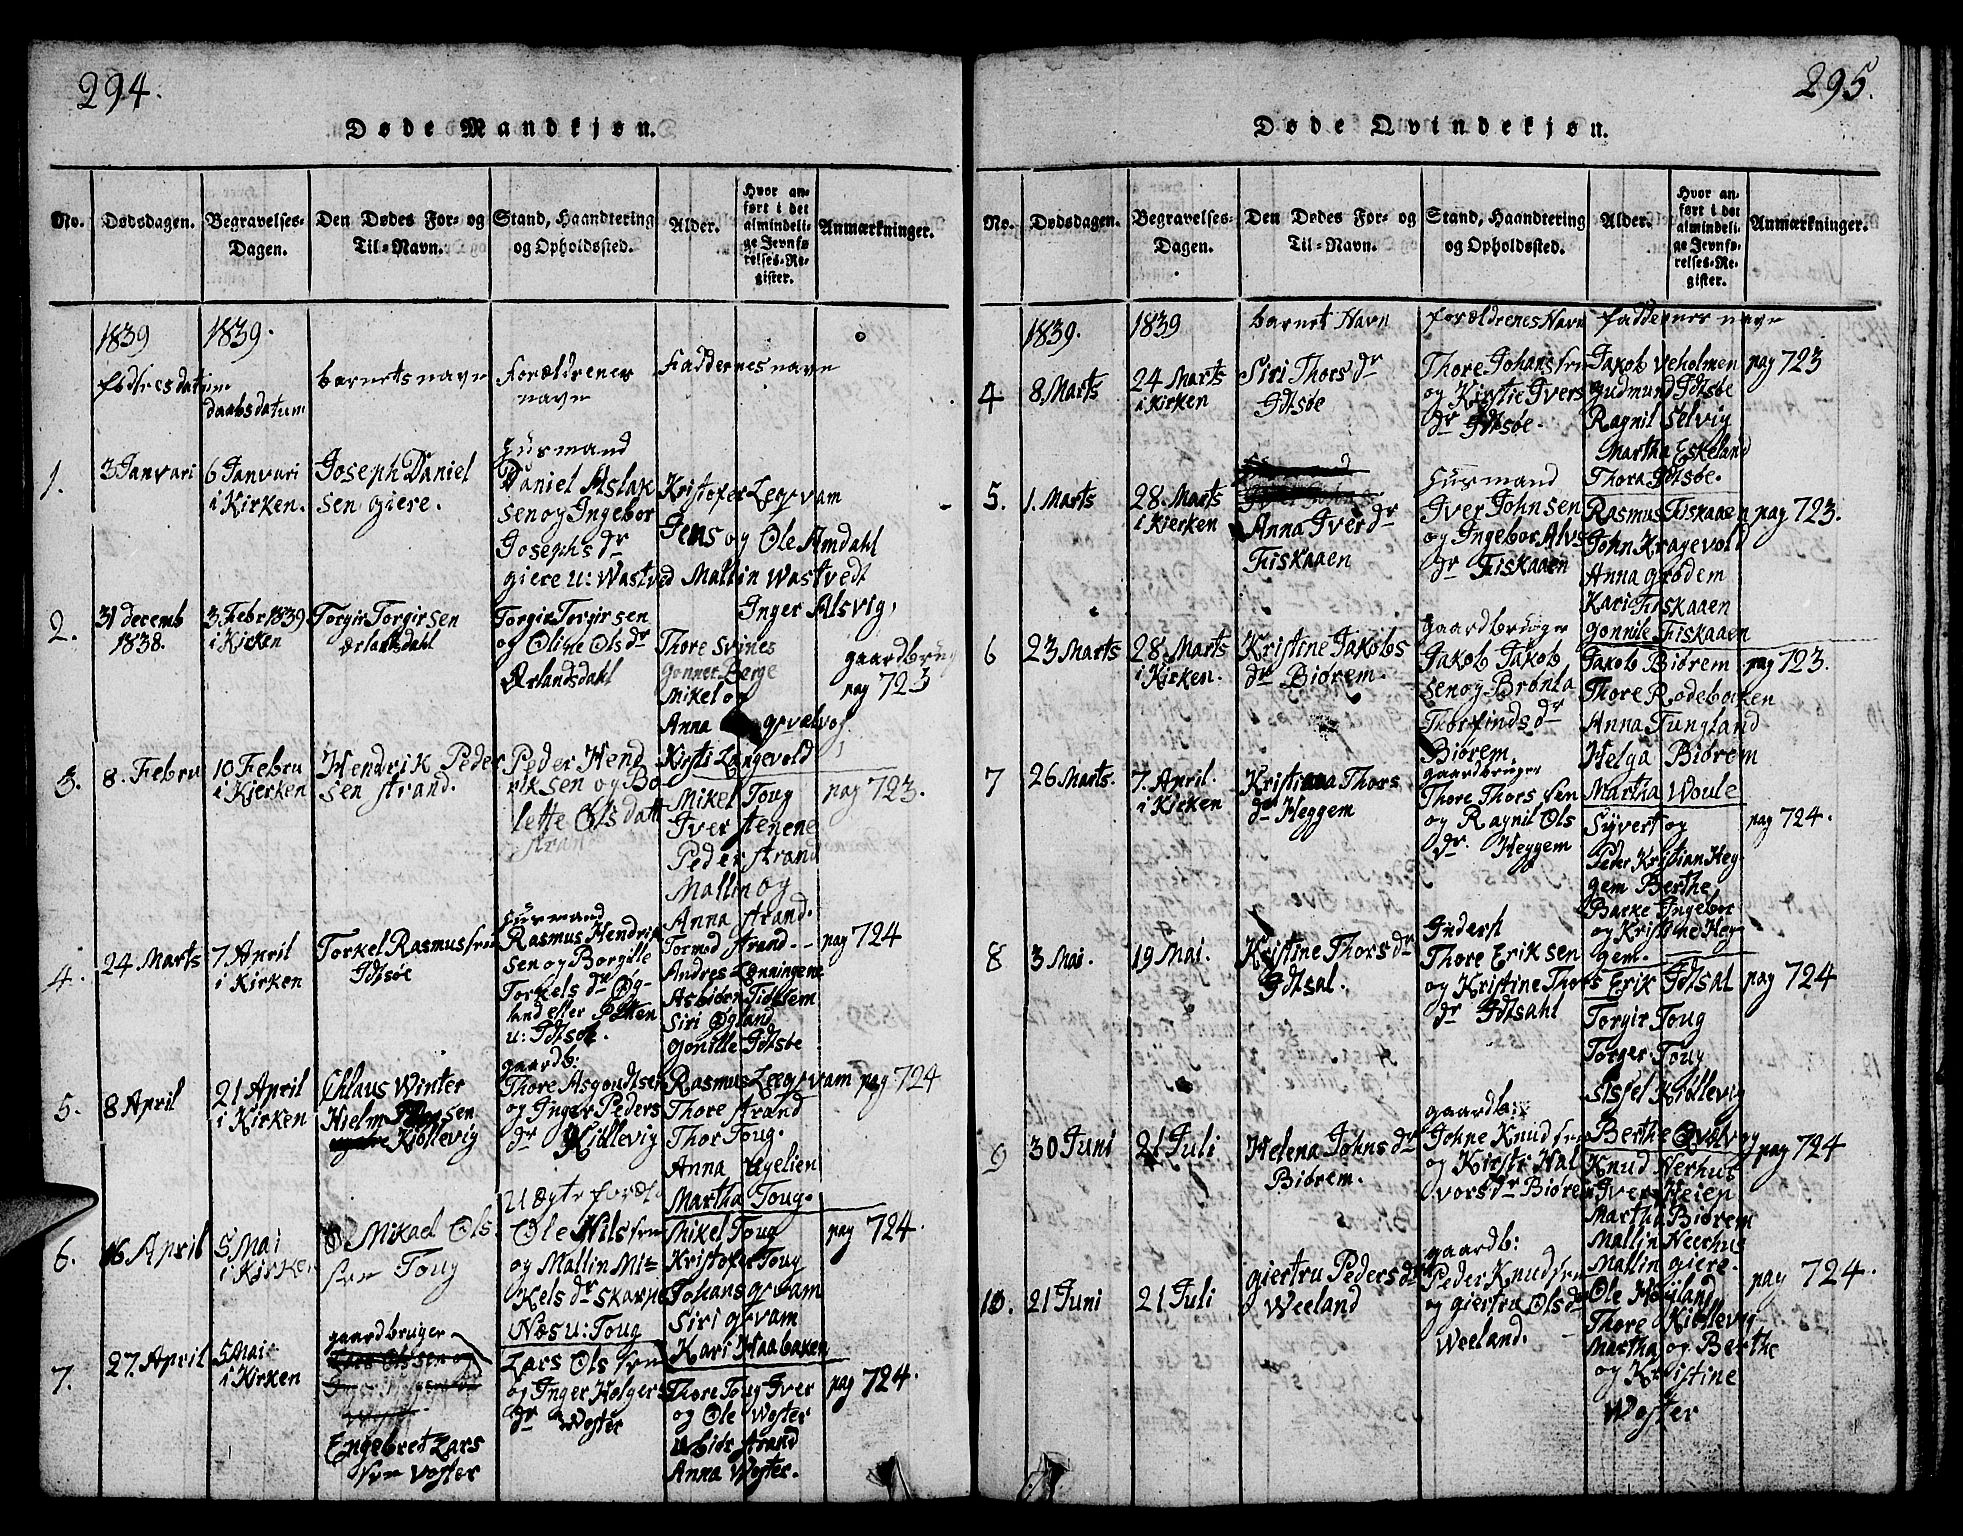 294.
Døde Mandkjøn.
No.
Dødsdagen.
Begravelses-
Dagen.
Den Dødes For- og
Til-Navn.
Stand, Haandtering
og Opholdssted.
Alder.
Hvor an-
ført i det
almindeli-
ge Jevnfø-
relses-Re-
gister.
Anmærkninger.
1839
fødsres datum
1839.
daabs datum
barnets navn
Forældrenes
navn
Faddernes navn
1.
3 Januari
6 Januari
i Kirken.
Joseph Daniel
sen giere.
Husmand
Daniel Aslak
sen og Ingebor
Josephs dr
giere u: Wastved
Kristofer Legsvam
Jens og Ole Amdahl
Mallin Wastvedt
Inger Alsvig
2.
31 decemb
1838.
3. Febr 1839
i Kirken
Torgir Torgirsen
Ørlandsdahl
Torgir Torgirsen
og Oline Ols dr
Ørlandsdahl
Thore Svines
Gonner Berge
Mikel og
Anna
Kirsti Langevold
gaardbrug
pag 723
3.
8. Febru
10 Febru
i Kierken
Hendrik Peder
sen strand.
Peder Hend
riksen og Bo
lette Ols datt
strand
Mikel Toug
Iver stenene
Peder strand
Mallin og
Anna strand.
pag 723.
4.
24 Marts
7 April
i Kirken
Torkel Rasmussen
Idtsøe
Husmand
Rasmus Hendrik
sen og Borgille
Torkels dr Øg-
land eller Potten
u: Idtsøe.
Tormod strand
Andres Lønningene
Asbiørn Tidlsem
Siri Øgland
Gonille Idtsøe
pag 724
5.
8 April
21 April
i Kirken
Chlaus Winter
Hielm
Kiøllevig
gaardb:
Thore Asgoudtsen
og Inger Peders
dr Kiøllevig
Rasmus Legsvam
Thore strand
Thor Toug.
Anna Ugelien
Martha Toug.
pag 724
6.
16 April
5 Mai
i Kirken
Mikael Ols
sen Toug
Uægte forældre
Ole Nilssen
og Mallin Mi=
kels dr Skorpe
Næs u: Toug
Mikel Toug
Kristofer Toug
Johans gsvam
Siri gsvam
Kari Haabaken
pag 724.
7.
27. April
5 Mai
i Kirken
gaardbruger
Engebret Lars
sen Voster
Lars Olssen
og Inger Holgers
dr Woster
Thore Toug Iver
og Ole Woster
Ubiør strand
Anna Woster.
pag 724.
295.
Døde Qvindekjøn.
No.
Dødsdagen.
Begravelses-
Dagen.
Den Dødes For- og
Til-Navn.
Stand, Haandtering
og Opholdssted.
Alder.
Hvor an-
ført i det
almindeli-
ge Jevnfø-
relses-Re-
gister.
Anmærkninger.
1839.
1839
barnets Navn
forældrenes Navn
faddernes navn
4
8 Marts
24 Marts
i Kirken
Siri Thors dr
Idtsøe
Thore Johanssen
og Kirstie Ivers
dr Idtsøe.
Jakob Veholmen
Gudmund Idtsøe
Ragnil Selvig
Martha Eskeland
Thora Idtsøe.
pag 723
5.
1. Marts
28. Marts
i Kierken
Anna Iver dr
Fiskaaen
Husmand
Iver Johnsen
og Ingebor Alvs
dr Fiskaaen
Rasmus Fiskaaen
John Kragevold
Anna Grødem
Kari Fiskaaen
Gonnile Fiskaaen
pag 723.
6
23 Marts
28 Marts
i Kirken.
Kristine Jakobs
dr Biørem.
gaardbruger
Jakob Jakob
sen og Brønla
Thorfinds dr
Biørem
Jakob Biørem
Thore Rødebakken
Anna Tungland
Helga Biørem
Martha Woule
pag 723.
7
26 Marts.
7. April.
i Kirken
Kristiana Thors
dr Heggem
gaardbruger
Thore Thorssen
og Ragnil Ols
dr. Heggem
Syvert og
Peder Kristian Heg-
gem Berthe
Barke Ingebor
og Kristine Heg-
gem.
pag 724.
8
3 Mai.
19 Mai.
Kristine Thors dr
Idtsal.
Inderst
Thore Eriksen
og Kristine Thors
dr Idtsahl
Erik Idtsal
Torgir Toug
Torger Toug
Sissel Kiøllevig
Berthe Qvalvog
pag 724
9
30 Juni
21 Juli
Helena Johns dr
Biørem.
gaardb:
Johne Knudsen
og Kirsti Hal
vors dr Biørem
Knud Nerhus
Iver Heien
Martha Biørem
Mallin Neerhus
Mallin giere.
pag 724
10.
21 Juni
21 Juli
Giertru Peders dr
Weeland
gaardb:
Peder Knudsen
og Giertru Ols dr
Weeland.
Ole Høyland
Thore Kiøllevig
Martha og Berthe
og Kristine
Woster
pag 724.